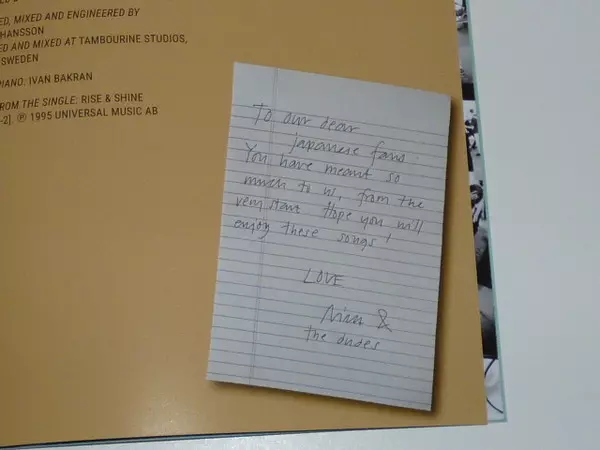 ED, MIXED AND ENGINEERED BY
HANSSON
ED AND MIXED AT TAMBOURINE STUDIOS,
SWEDEN
PIANO: IVAN BAKRAN
FROM THE SINGLE: RISE & SHINE
-2]. ℗ 1995 UNIVERSAL MUSIC AB
To our dear
japanese fans.
You have meant so
much to us, from the
very start. Hope you will
enjoy these songs!
LOVE
Nina &
the dudes